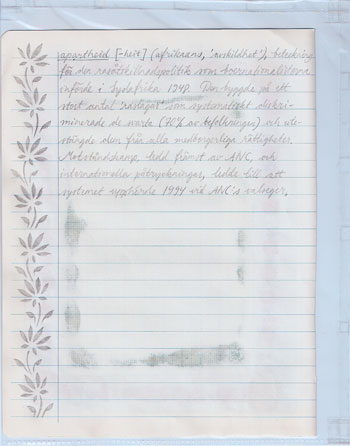 apartheid [-heit] (afrikaans, 'åtskildhet'), beteckning
för den rasåtskillnadspolitik som boernationalisterna
införde i Sydafrika 1948. Den byggde på ett
stort antal "raslagar" som systematiskt diskri-
minerade de svarta (70% av befolkningen) och ute-
stängde dem från alla medborgerliga rättigheter.
Motståndskamp, ledd främst av ANC, och
internationella påtryckningar, ledde till att
systemet upphörde 1994 vid ANC's valseger.